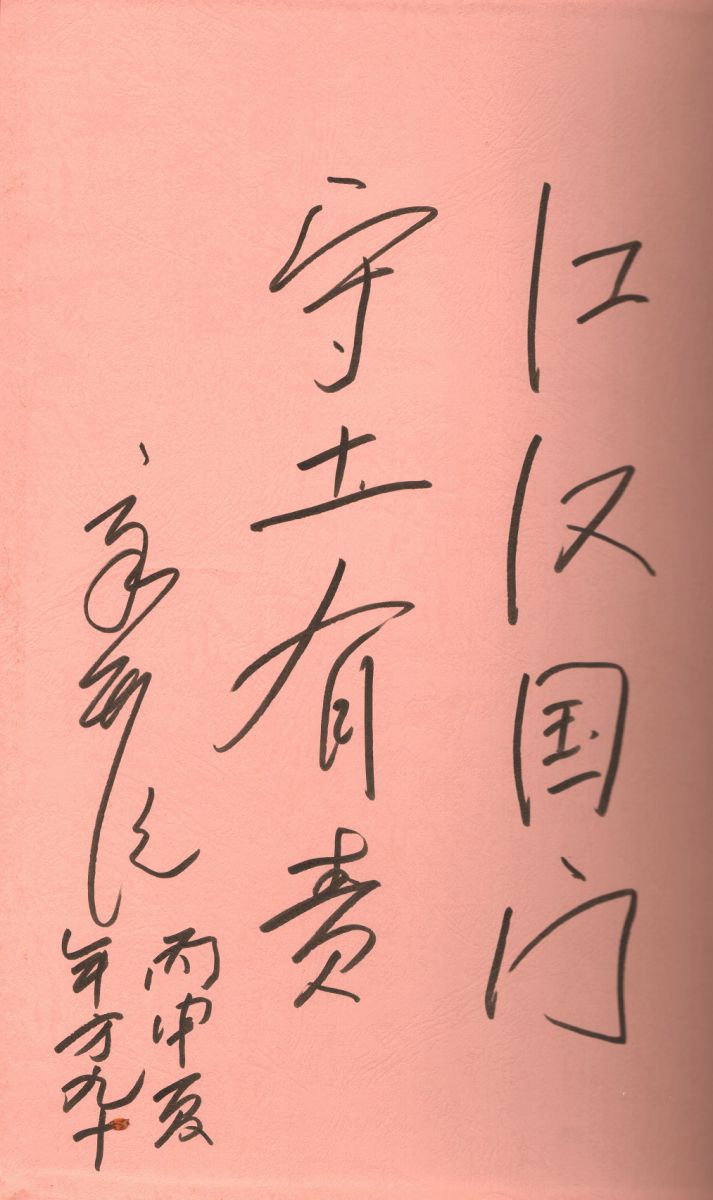 江汉国门
守土有责
丙申夏
年方九十